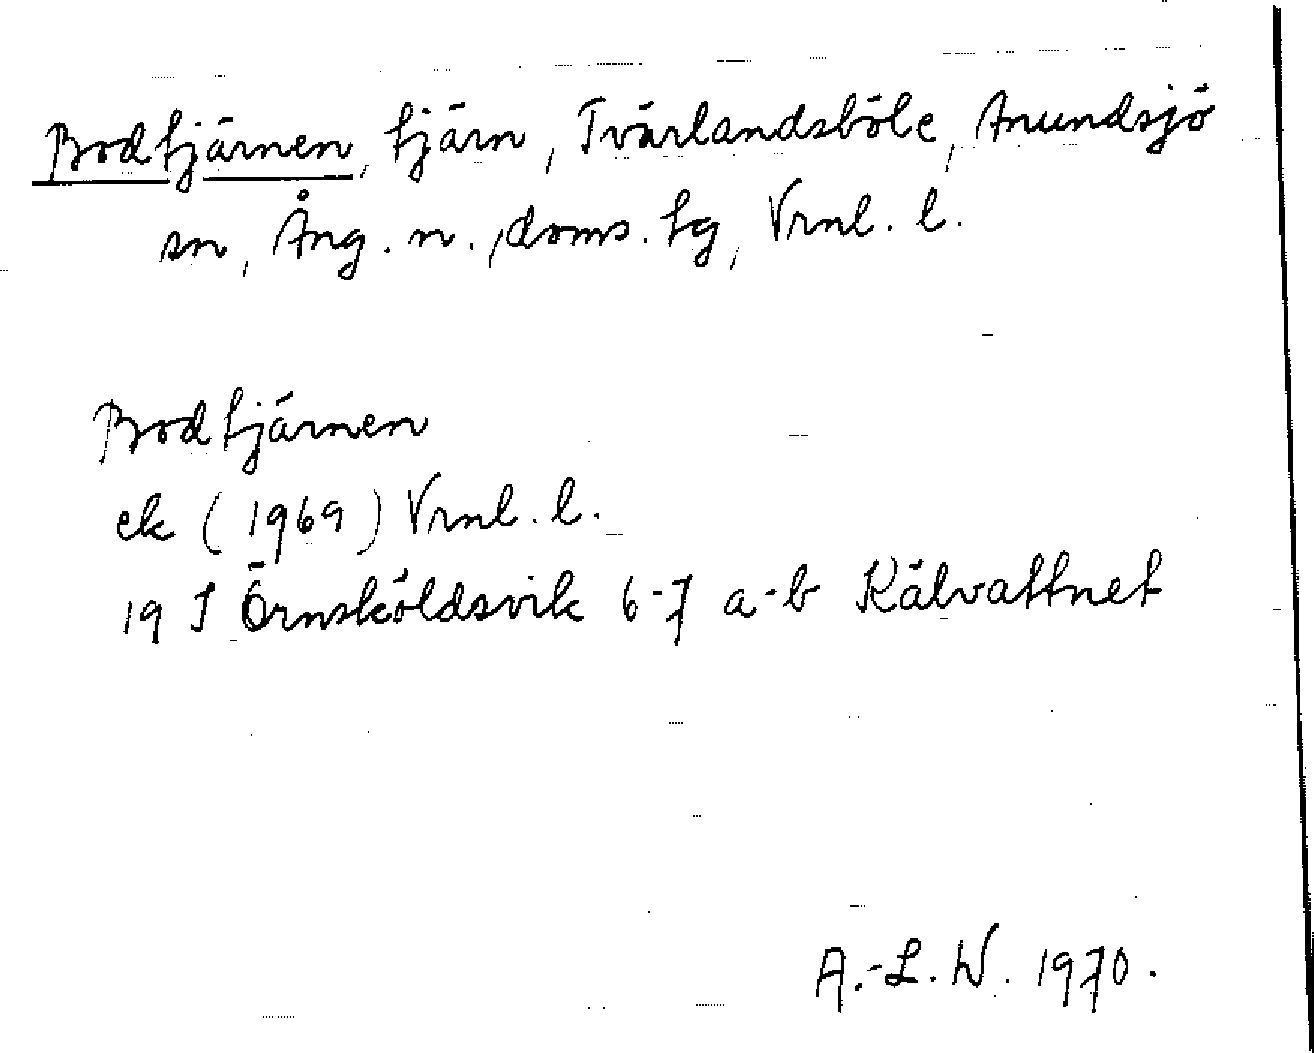 Bodtjärnen, tjärn, Tvärlandsböle, Anundsjö
sn, Ång. n., doms. tg, Vrnl. l.
Bodtjärnen
ek (1969) Vrnl. l.
19 J Örnsköldsvik 6-7 a-b Kälvattnet
A.-L. W. 1970.